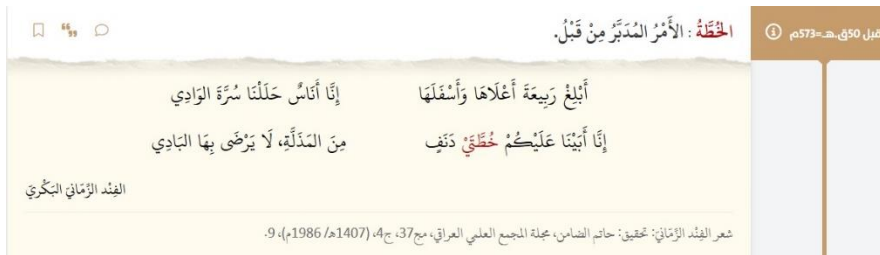 الخُطَّةُ : الأَمْرُ المُدَبَّرُ مِنْ قَبْلُ.
قبل 50ق.هـ=573م
أَبْلِغْ رَبِيعَةَ أَعْلَاهَا وَأَسْفَلَهَا إِنَّا أُنَاسٌ حَلَلْنَا سُرَّةَ الوَادِي
إِنَّا أَبَيْنَا عَلَيْكُمْ خُطَّتَيْ دَنَفٍ مِنَ المَذَلَّةِ، لَا يَرْضَى بِهَا البَادِي
الفِنْد الزِّمَانيّ البَكْريّ
شعر الفِنْد الزِّمَانيّ: تحقيق: حاتم الضامن، مجلة المجمع العلمي العراقي، مج37، ج4، (1407هـ/ 1986م)، 9.